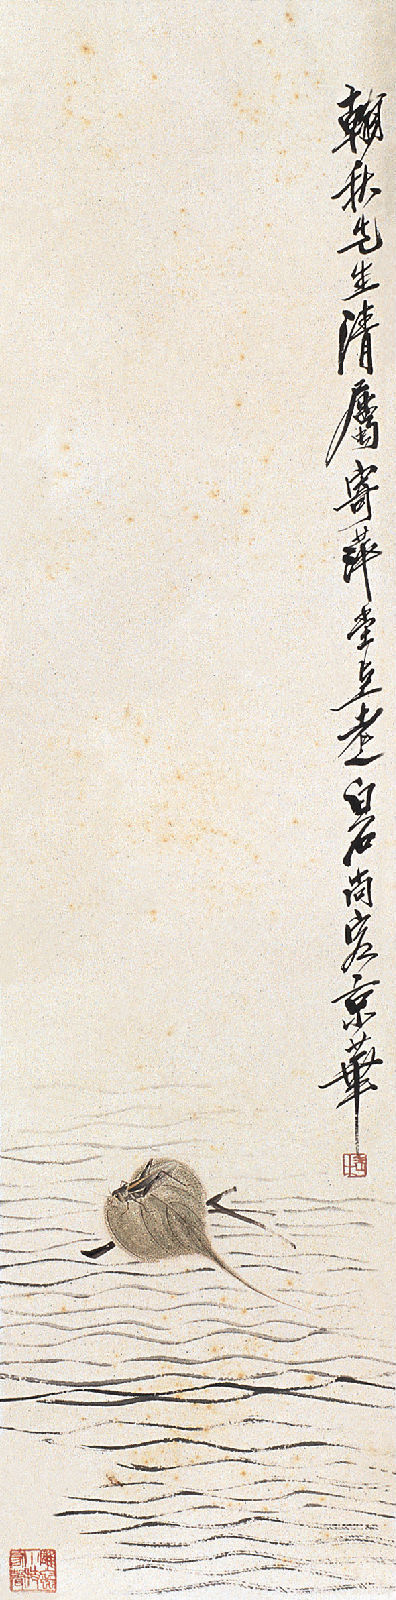 翰秋先生清屬寄萍堂上老白石尚客京華